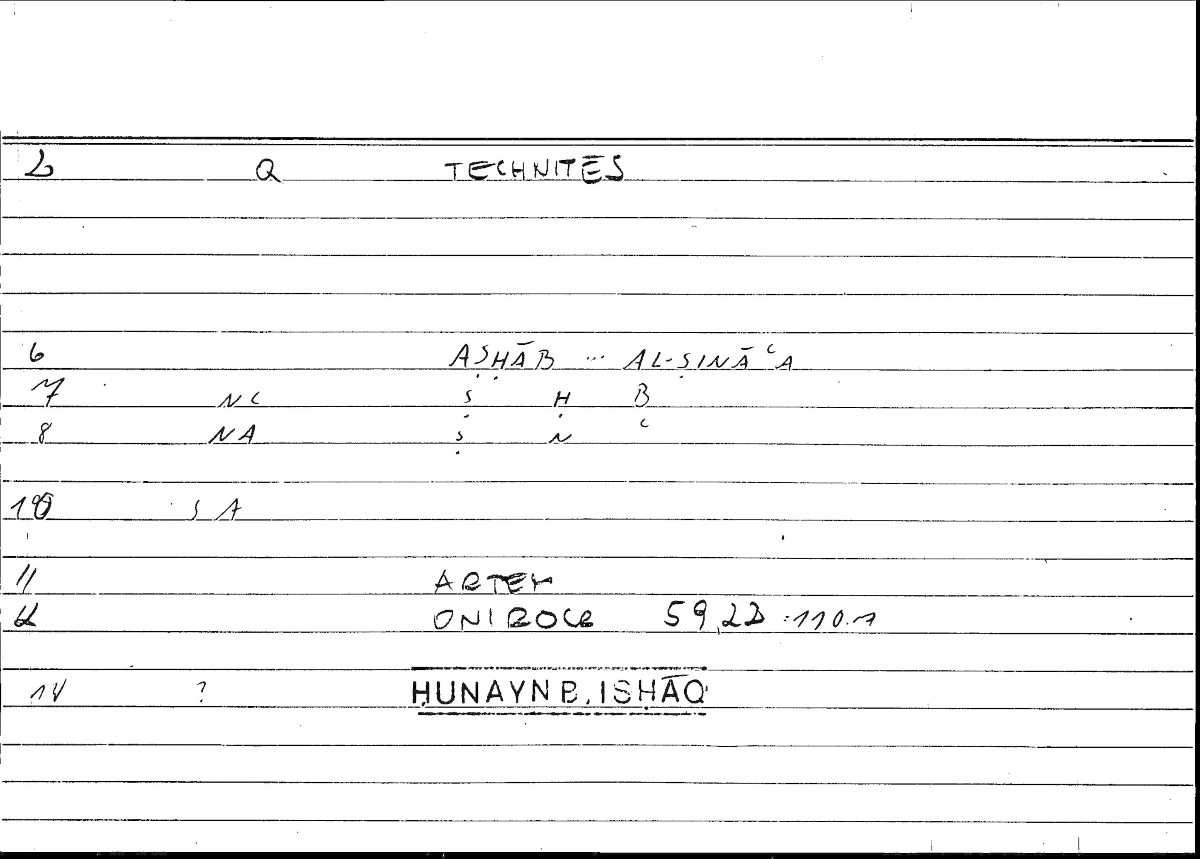 Q TECHNITĒS
6 AṢḤĀB ... AL-ṢINĀʿA
7 NC Ṣ Ḥ B
8 NA Ṣ N ʿ
10 S A
11 ARTEM
ONIROCR 59,22 110.7
14 ? ḤUNAYN B. ISḤĀQ